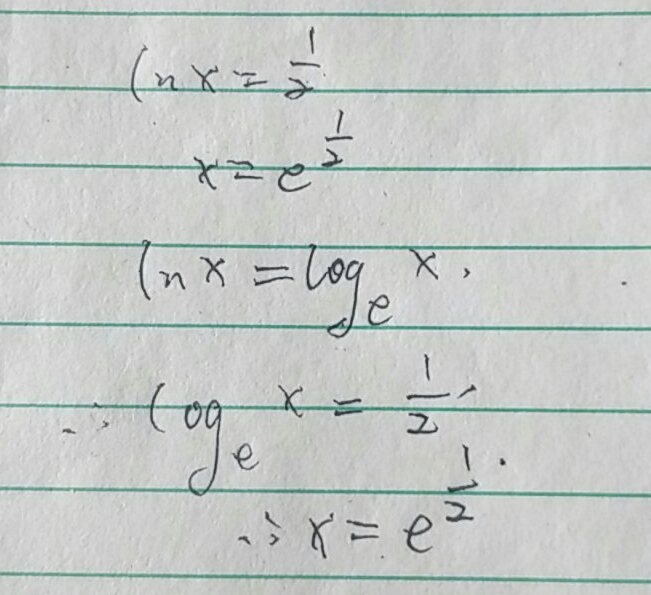 ln x = 1/2
x = e^(1/2)
ln x = log_e x,
∴ log_e x = 1/2,
∴ x = e^(1/2).